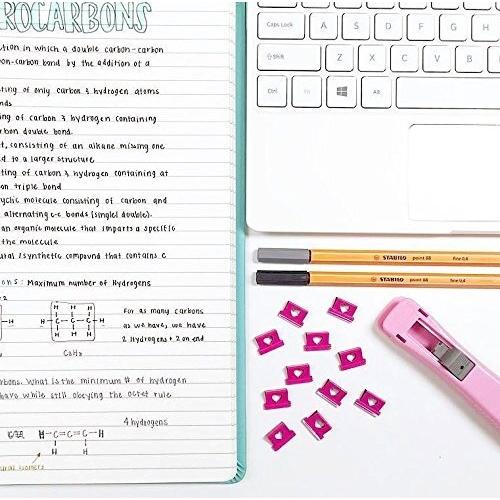 ROCARBONS
tion in which a double carbon-carbon
on-carbon bond by the addition of a
ting of only carbon & hydrogen atoms
nds
ng of carbon & hydrogen containing
rbon double bond.
t, consisting of an alkane missing one
d to a larger structure
ting of carbon & hydrogen containing at
on triple bond
yclic molecule consisting of carbon and
alternating c-c bonds (single/double).
an organic molecule that imparts a specific
the molecule
ural/synthetic compound that contains C
ons: Maximum number of Hydrogens
H H H
-H H-C-C-C-H
H H H
C3H8
For as many carbons
as we have, we have
2 Hydrogens + 2 on end
rbons. What is the minimum # of hydrogen
have while still obeying the octet rule
4 hydrogens
H-C=C=C-H
H H
ural isomers
Caps Lock A S D F G H
Shift Z X C V B N
Ctrl Fn Alt
STABILO point 88 fine 0,4
STABILO point 88 fine 0,4